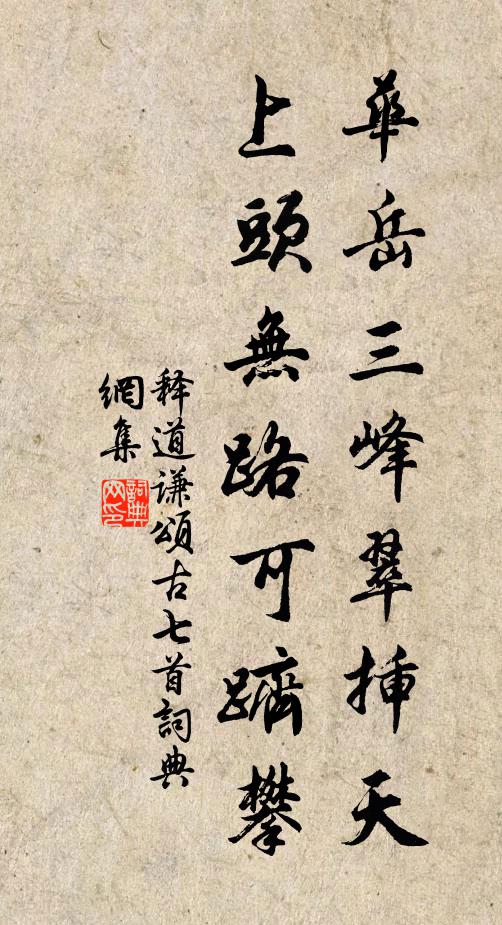 華岳三峰翠挿天
上頭無路可躋攀
释道谦頌古七首詞典
網集
詞典
网印